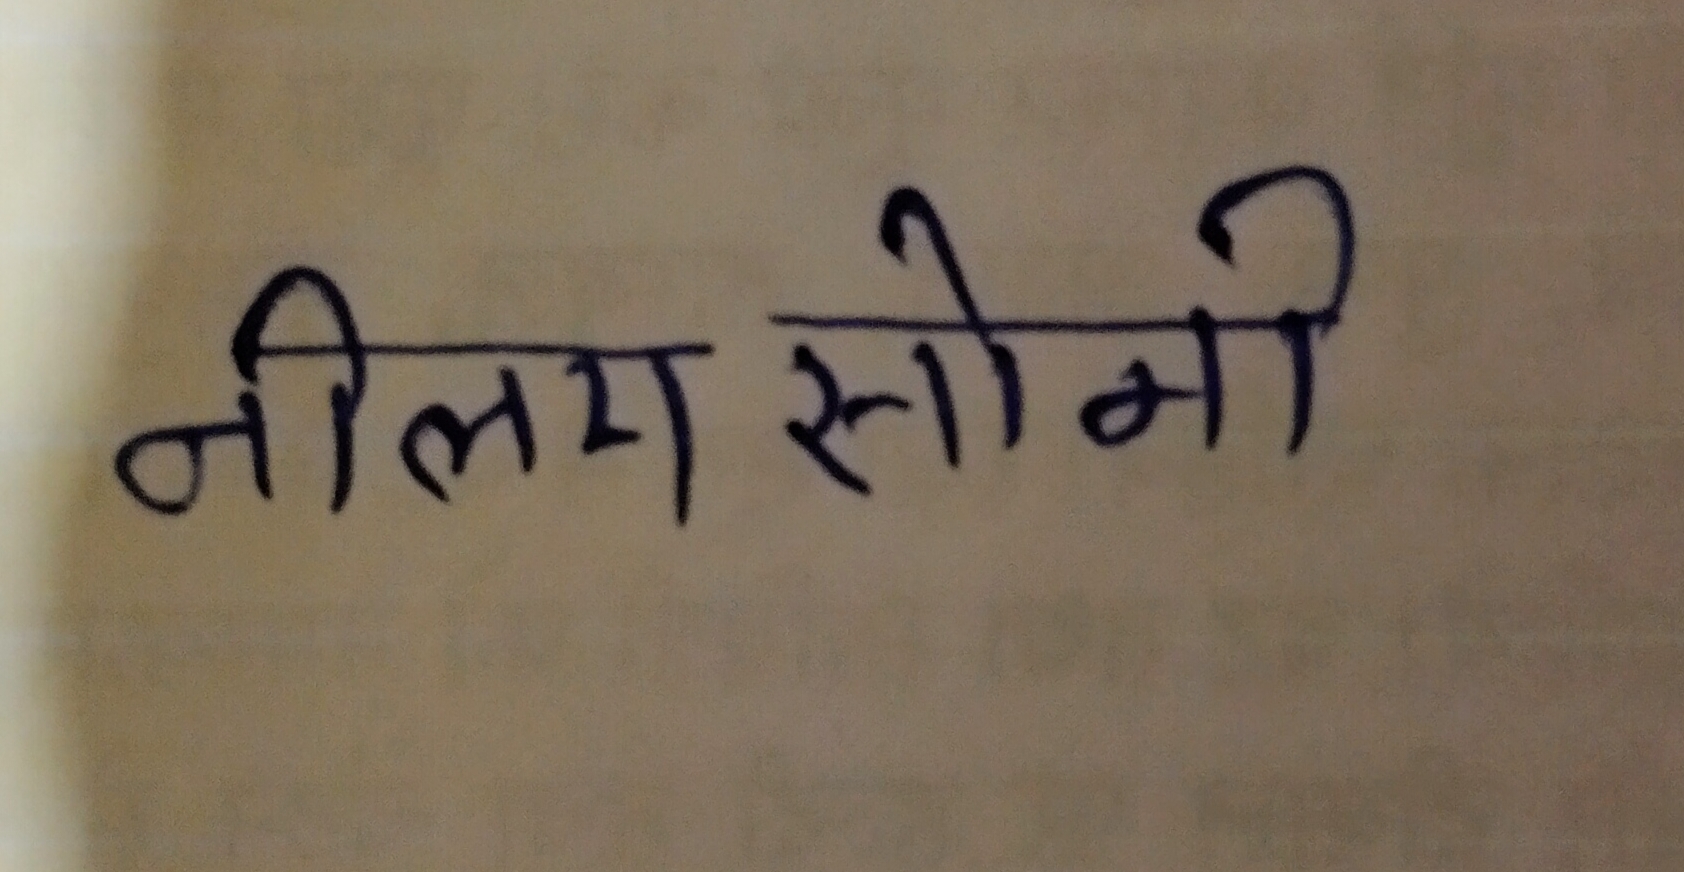 नीलम सोनी